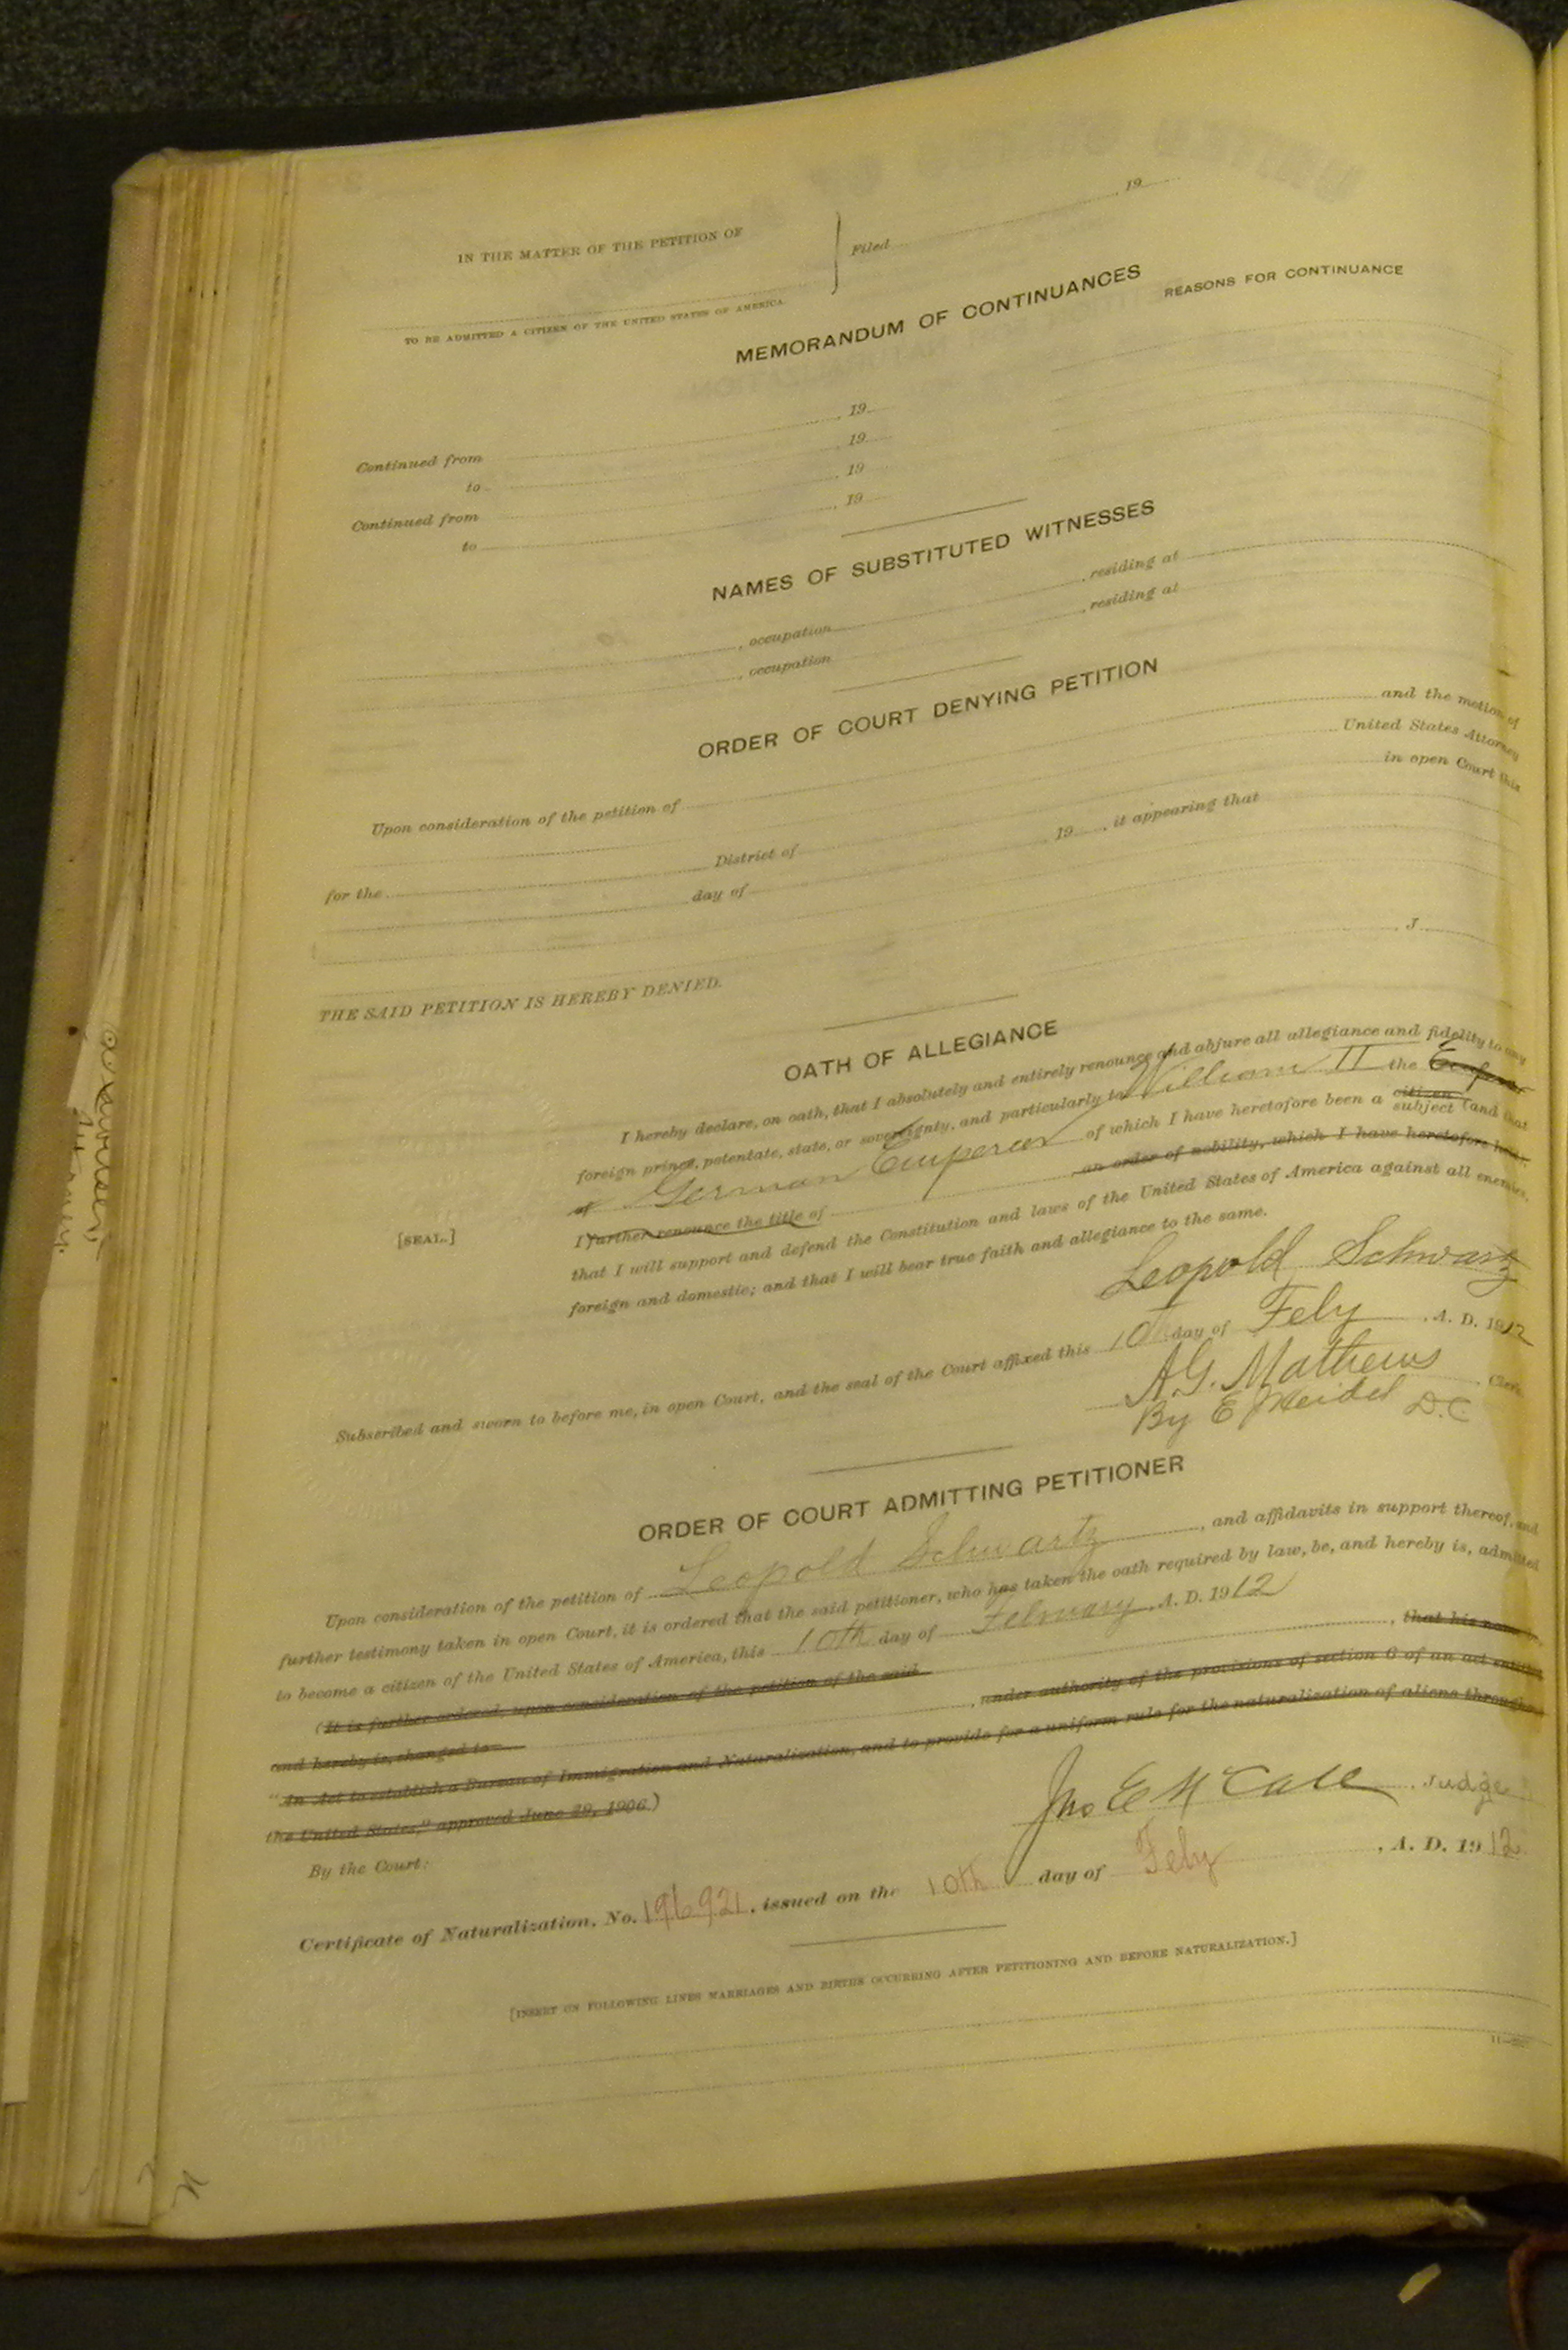 IN THE MATTER OF THE PETITION OF
Filed , 19
TO BE ADMITTED A CITIZEN OF THE UNITED STATES OF AMERICA
MEMORANDUM OF CONTINUANCES
REASONS FOR CONTINUANCE
Continued from , 19
to , 19
Continued from , 19
to , 19
NAMES OF SUBSTITUTED WITNESSES
, occupation , residing at
, occupation , residing at
ORDER OF COURT DENYING PETITION
Upon consideration of the petition of and the motion of
United States Attorney
for the District of in open Court this
day of , 19 , it appearing that
THE SAID PETITION IS HEREBY DENIED.
J
OATH OF ALLEGIANCE
I hereby declare, on oath, that I absolutely and entirely renounce and abjure all allegiance and fidelity to any
foreign prince, potentate, state, or sovereignty, and particularly to William II the
of German Emperor of which I have heretofore been a citizen subject (and that
I further renounce the title of an order of nobility, which I have heretofore
that I will support and defend the Constitution and laws of the United States of America against all enemies,
foreign and domestic; and that I will bear true faith and allegiance to the same.
[SEAL.]
Leopold Schwartz
Subscribed and sworn to before me, in open Court, and the seal of the Court affixed this 10th day of Feby , A. D. 1912
A.G. Mathews , Clerk
By E D.C.
ORDER OF COURT ADMITTING PETITIONER
Upon consideration of the petition of Leopold Schwartz , and affidavits in support thereof, and
further testimony taken in open Court, it is ordered that the said petitioner, who has taken the oath required by law, be, and hereby is, admitted
to become a citizen of the United States of America, this 10th day of February , A. D. 1912
(It is further ordered, upon consideration of the petition of the said , that his name
and hereby is, changed to , under authority of the provisions of section 6 of an act entitled
"An Act to establish a Bureau of Immigration and Naturalization, and to provide for a uniform rule for the naturalization of aliens throughout
the United States," approved June 29, 1906.)
By the Court:
Jno E McCall , Judge
Certificate of Naturalization, No. 196921, issued on the 10th day of Feby , A. D. 1912
[INSERT ON FOLLOWING LINES MARRIAGES AND BIRTHS OCCURRING AFTER PETITIONING AND BEFORE NATURALIZATION.]